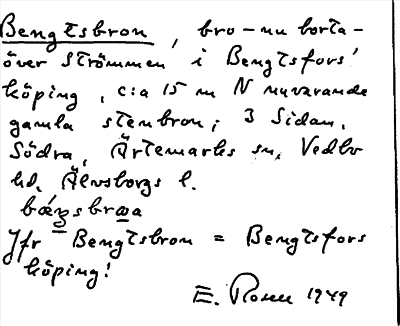 Bengtsbron, bro – nu borta –
över Strömmen i Bengtsfors'
köping, c:a 15 m N nuvarande
gamla stenbron; 3 Sidan,
Södra, Ärtemarks sn, Vedbo
hd, Älvsborgs l.
Jfr Bengtsbron = Bengtsfors
köping!
E. Rosen 1949